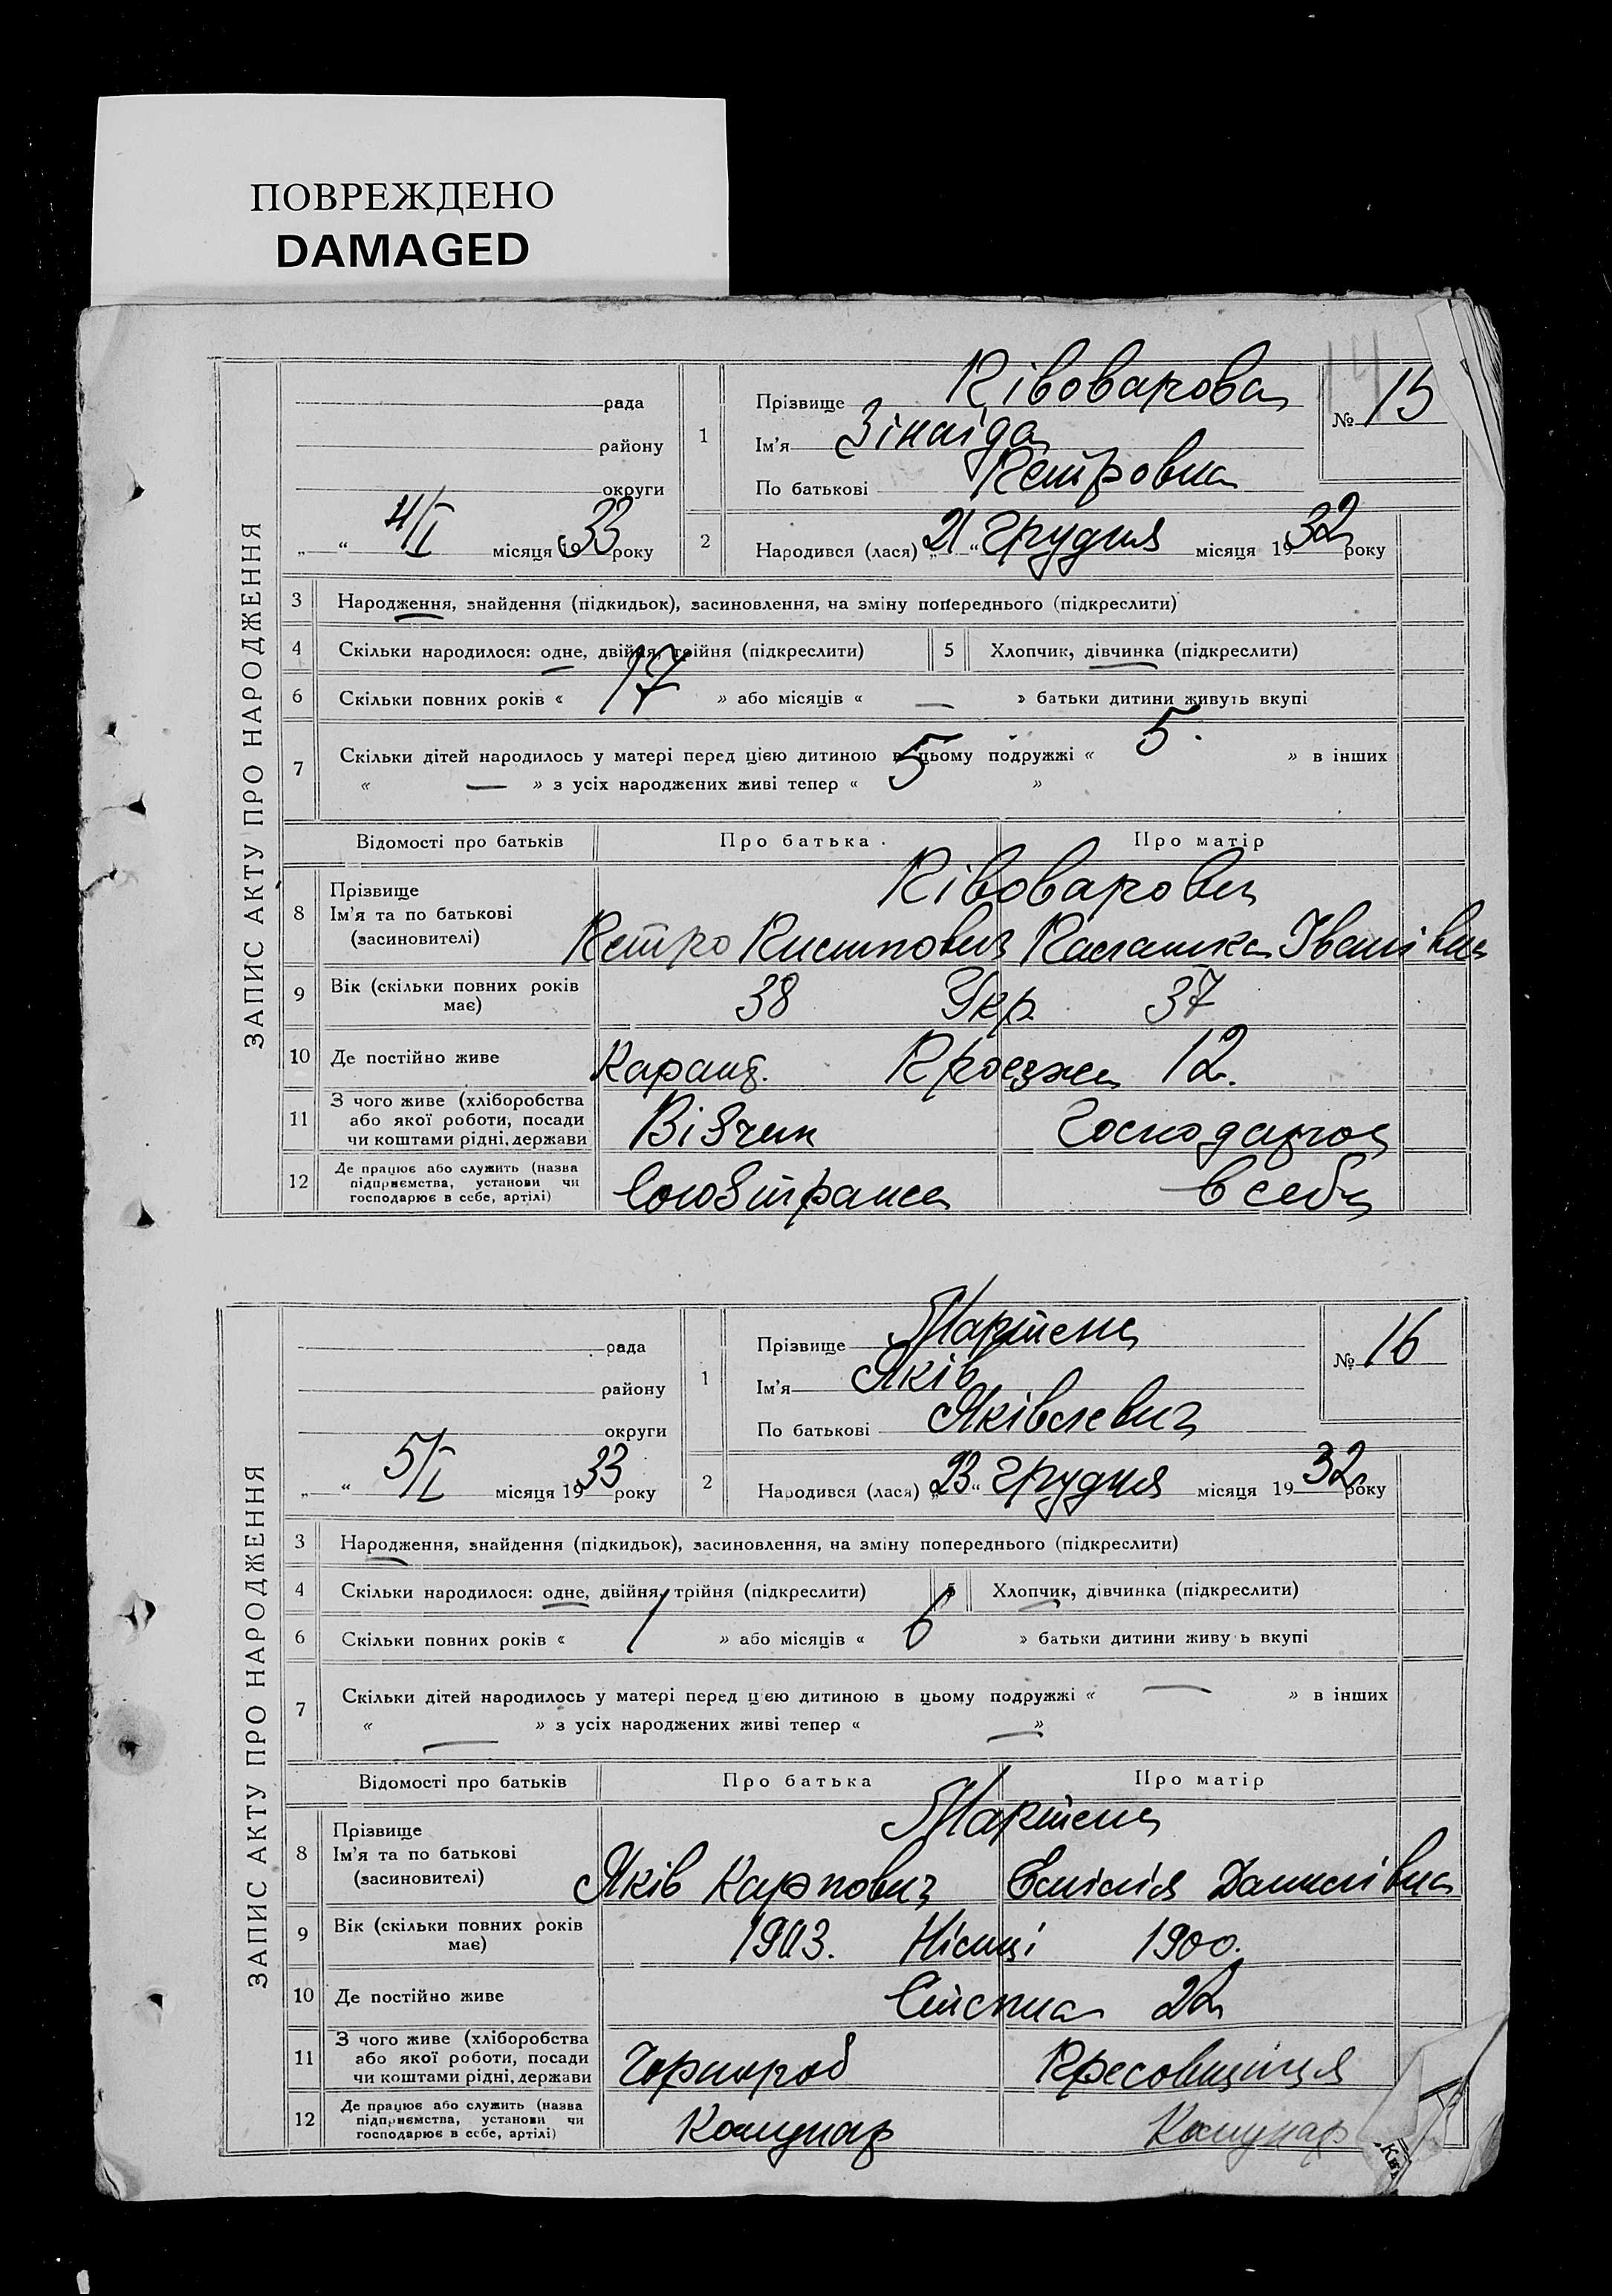 ПОВРЕЖДЕНО
DAMAGED
14
ЗАПИС АКТУ ПРО НАРОДЖЕННЯ
рада
району
округи
„ “ 4/I місяця 1933 року
1 Прізвище Півоварова
Ім'я Зінаїда
По батькові Петровна
№ 15
2 Народився (лася) „21“ грудня місяця 1932 року
3 Народження, знайдення (підкидьок), засиновлення, на зміну попереднього (підкреслити)
4 Скільки народилося: одне, двійня, трійня (підкреслити) 5 Хлопчик, дівчинка (підкреслити)
6 Скільки повних років « 17 » або місяців « — » батьки дитини живуть вкупі
7 Скільки дітей народилось у матері перед цією дитиною в цьому подружжі « 5 » в інших
« — » з усіх народжених живі тепер « 5 »
Відомості про батьків Про батька Про матір
8 Прізвище
Ім'я та по батькові
(засновителі)
Півоварови
Петро Пилипович Палашка Іванівна
9 Вік (скільки повних років має) 38 Укр. 37
10 Де постійно живе Каранд. Проезжа 12.
11 З чого живе (хліборобства або якої роботи, посади чи коштами рідні, держави Візчик Господарюя
12 Де працює або служить (назва підприємства, установи чи господарює в себе, артілі) Союзтранса в себе
ЗАПИС АКТУ ПРО НАРОДЖЕННЯ
рада
району
округи
„ “ 5/I місяця 1933 року
1 Прізвище Мартенс
Ім'я Яків
По батькові Яківлевич
№ 16
2 Народився (лася) „23“ грудня місяця 1932 року
3 Народження, знайдення (підкидьок), засиновлення, на зміну попереднього (підкреслити)
4 Скільки народилося: одне, двійня, трійня (підкреслити) 5 Хлопчик, дівчинка (підкреслити)
6 Скільки повних років « 1 » або місяців « 6 » батьки дитини живу ь вкупі
7 Скільки дітей народилось у матері перед ц єю дитиною в цьому подружжі « — » в інших
« — » з усіх народжених живі тепер « — »
Відомості про батьків Про батька Про матір
8 Прізвище
Ім'я та по батькові
(засиновителі)
Мартенс
Яків Карпович Емілія Данилівна
9 Вік (скільки повних років має) 1903. Німці 1900.
10 Де постійно живе Степна 22
11 З чого живе (хліборобства або якої роботи, посади чи коштами рідні, держави Чорнороб Пресовщиця
12 Де працює або служить (назва підприємства, установи чи господарює в себе, артілі) Комунар Комунар